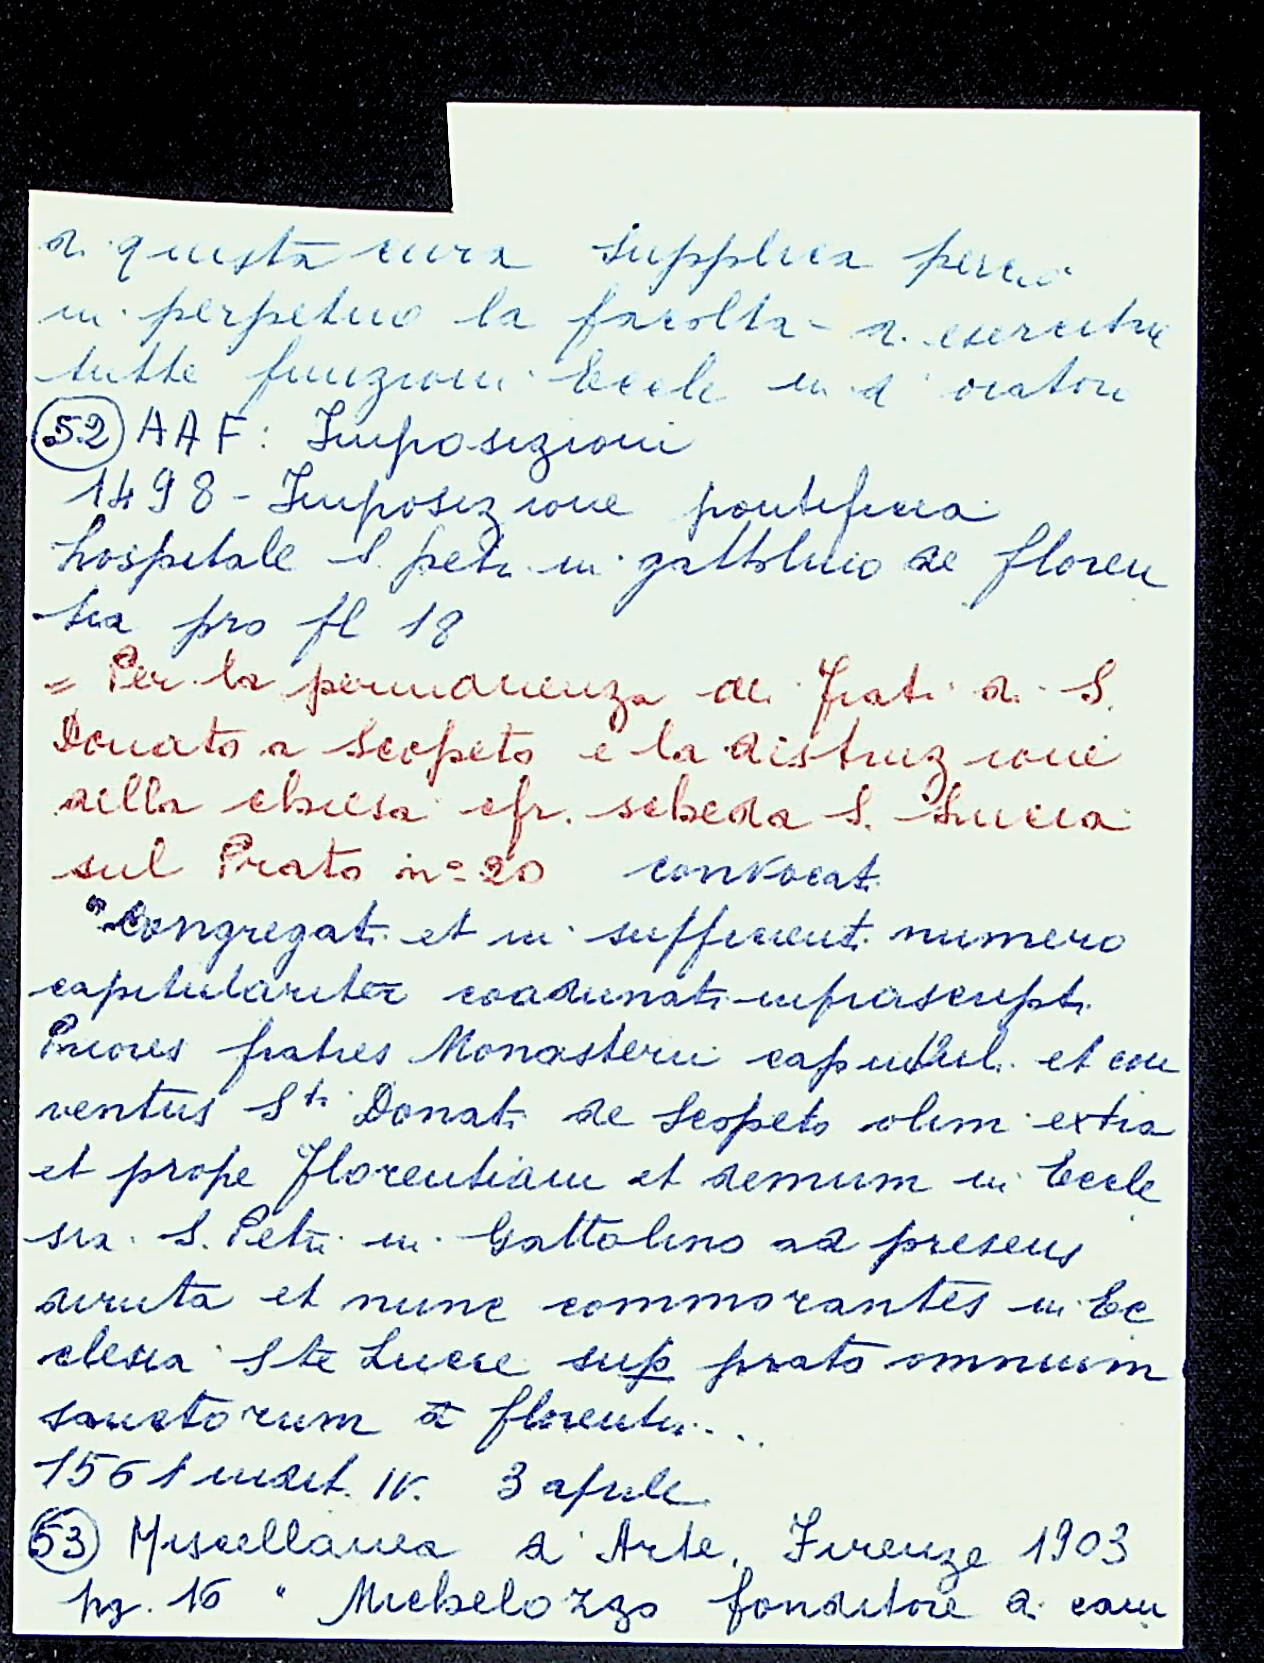 di questa cura supplica perciò
in perpetuo la facoltà di esercitare
tutte funzioni Eccle in d° oratori
52 AAF: Imposizioni
1498 - Imposizione pontificia
hospitale S. petri in gattolino de floren
tia pro fl 18
= Per la permanenza dei frati di S.
Donato a Scopeto e la distruzione
della chiesa cfr. scheda S. Lucia
sul Prato n° 20 convocati
"Congregati et in sufficienti numero
capitulariter coadunati infrascripti
Priores fratres Monasterii capitul. et con
ventus Sti Donati de Scopeto olim extra
et prope Florentiam et demum in Eccle
sia S. Petri in Gattolino ad presens
diruta et nunc commorantes in Ec
clesia Ste Lucie sup prato omnium
sanctorum d florentie...
1561 indit. IV. 3 aprile
53 Miscellanea d'Arte, Firenze 1903
pg. 16 " Michelozzo fonditore di cam